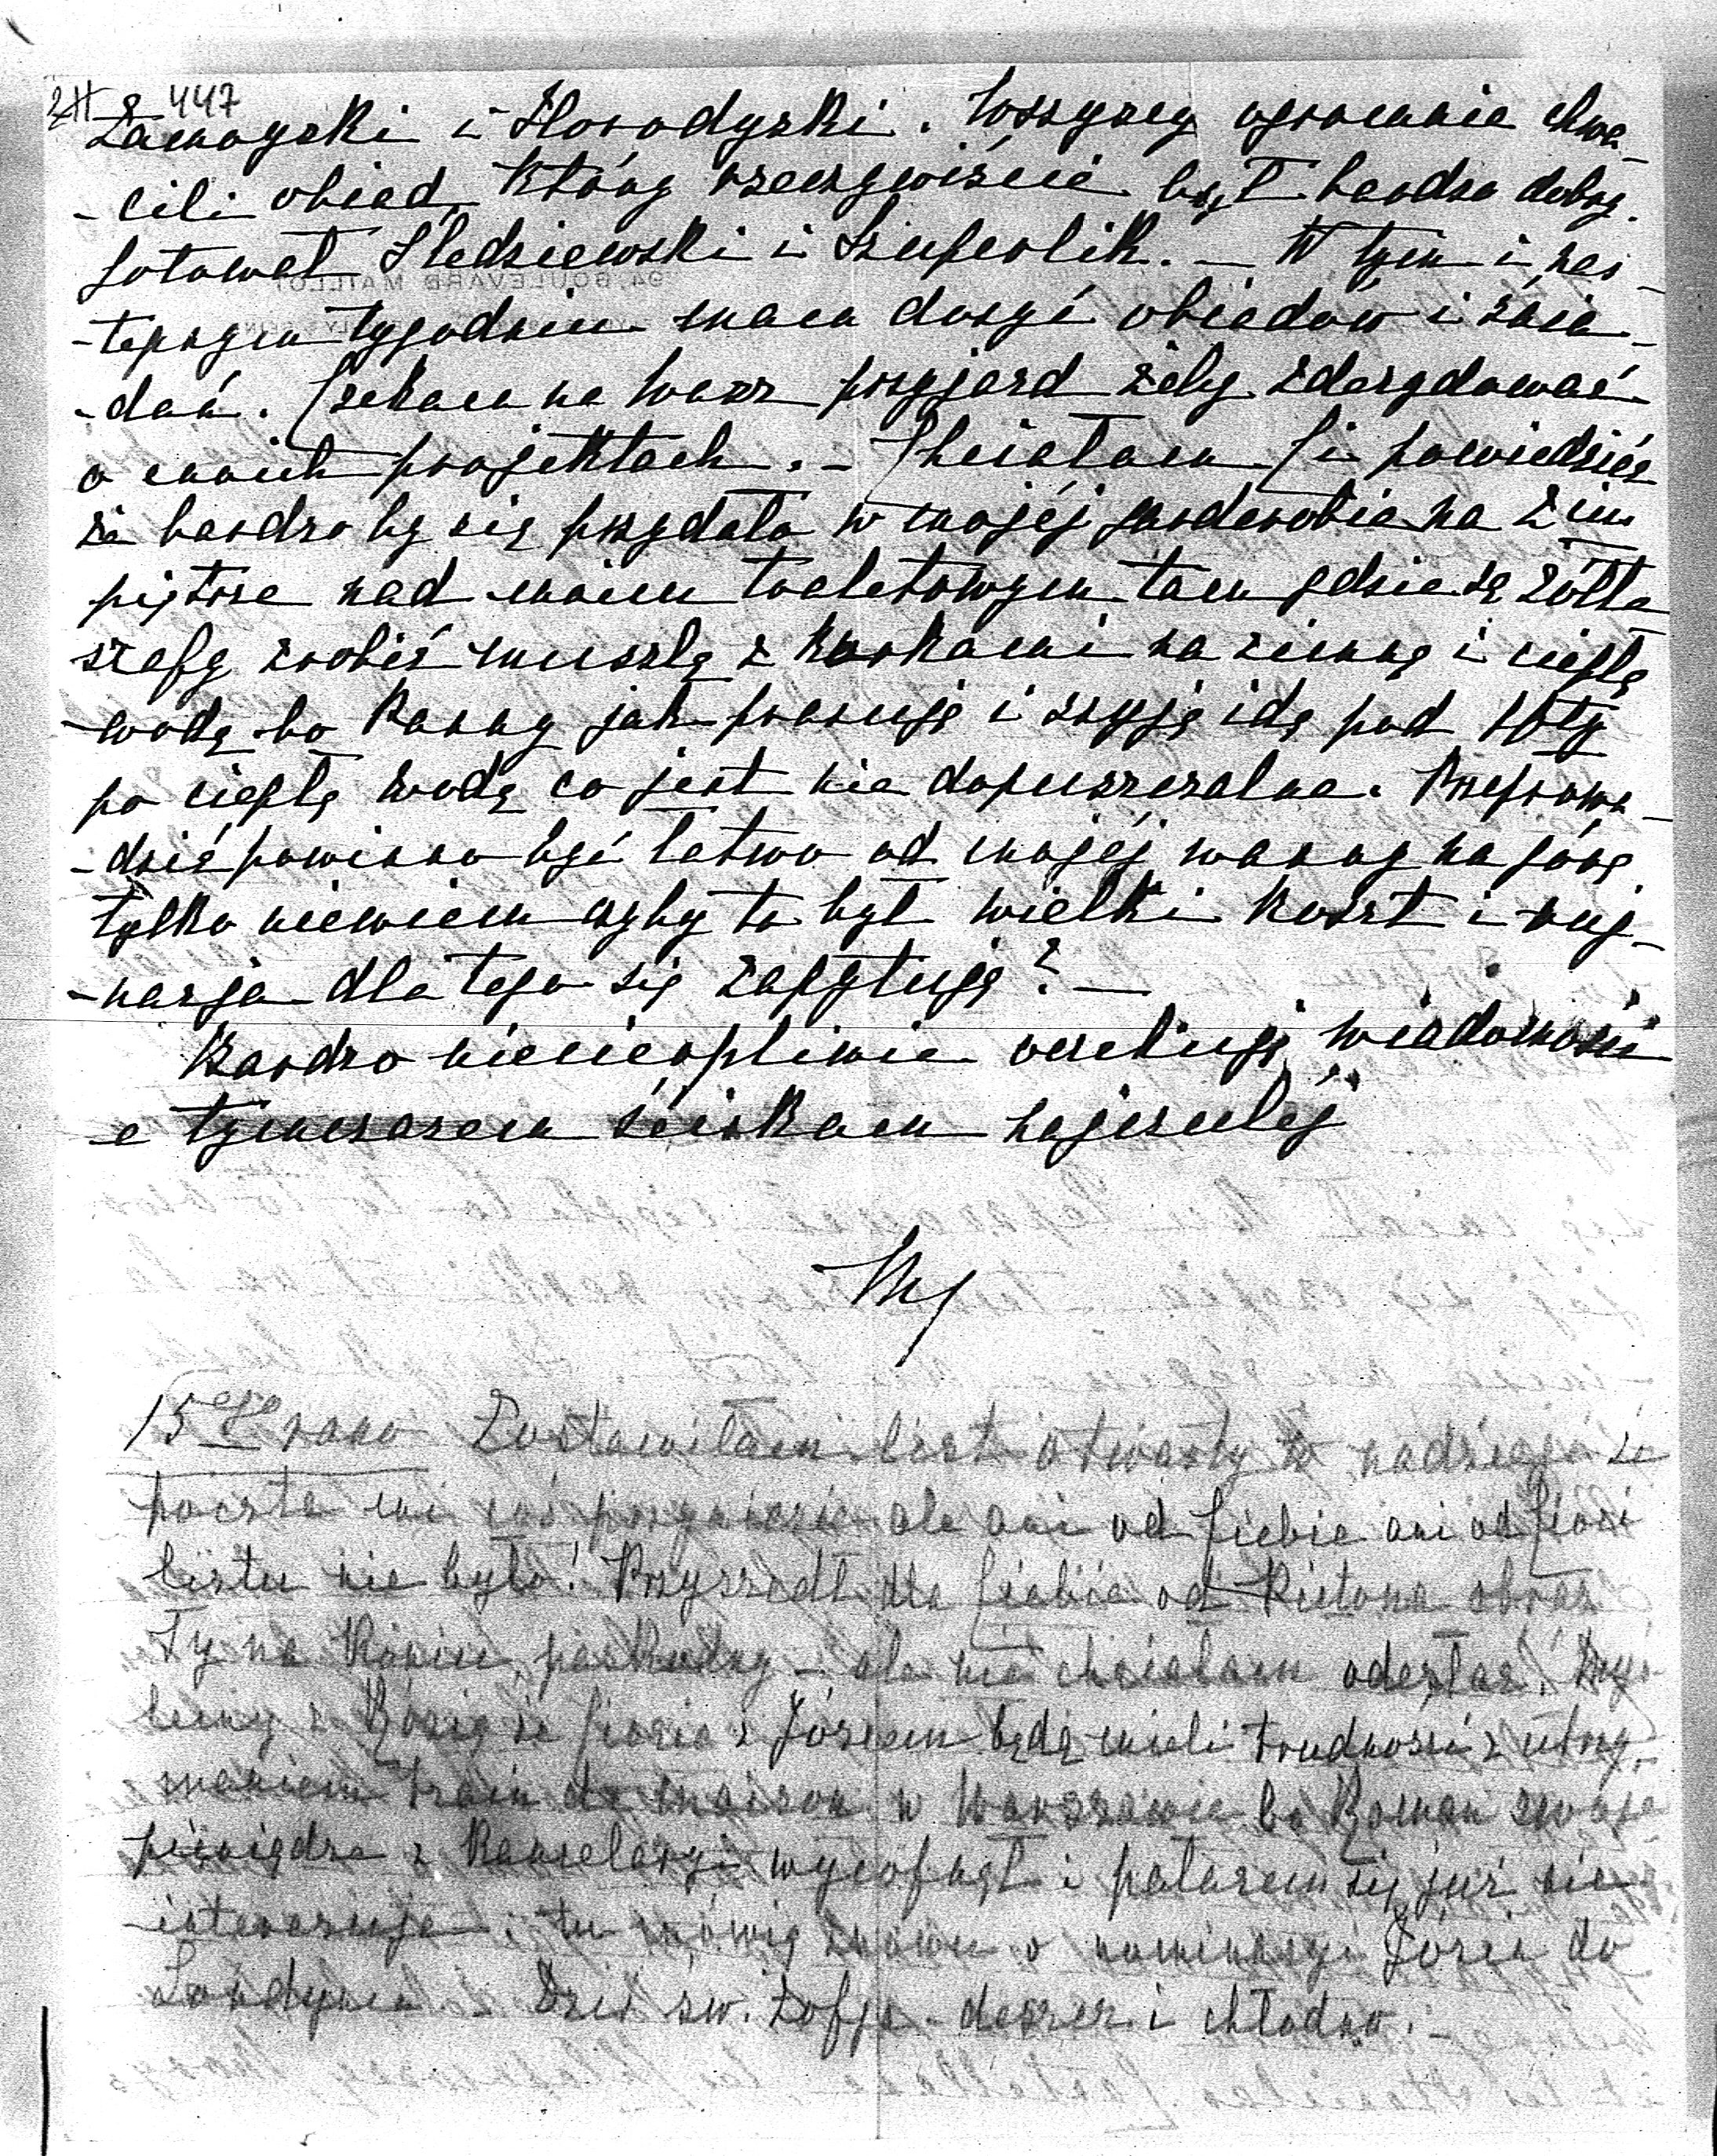 ZH 447
Zamoyski i Horodyski. Wszyscy ogromnie chwa-
-cili obiad, który rzeczywiście był bardzo dobry.
Gotował Śledziewski i Szuperlik. – W tym i nas-
-tępnym tygodniu mam dosyć obiadów i śnia-
-dań. Czekam na Wasz przyjazd żeby zdecydować
o moich projektach. – Chciałam Ci powiedzieć
że bardzo by się przydało w mojéj garderobie na 2im
piętrze nad moim toaletowym tam gdzie są żółte
szafy zrobić muszlę z kurkami na zimną i ciepłą
-wodę bo panny jak prasują i szyją idą pod
po ciepłą wodę co jest nie dopuszczalne. Przeprowa-
-dzić powinno być łatwo od mojéj wanny na górę
tylko niewiem czyby to był wielki koszt i ruj-
-nacja dla tego się zapytuję? –
Bardzo niecierpliwie oczekuję wiadomości
a tymczasem ściskam najczuléj
15ego rano Zostawiłam list otwarty w nadzieji że
poczta mi coś przyniesie ale ani od Ciebie ani od
listu nie było! Przyszedł dla Ciebie od obraz
Ty na koniu, paskudny – ale nie chciałam odesłać. Myś-
limy z Rózią że z Józiem będą mieli trudności z utrzy-
maniem train de maison w Warszawie bo Roman swoje
pieniądze z kancelaryi wycofnął i pałacem się już nie
interesuje; tu mówią znowu o nominacyi Józia do
Londynu. – Dziś św. Zofja – deszcz i chłodno. –
94, BOULEVARD MAILLOT